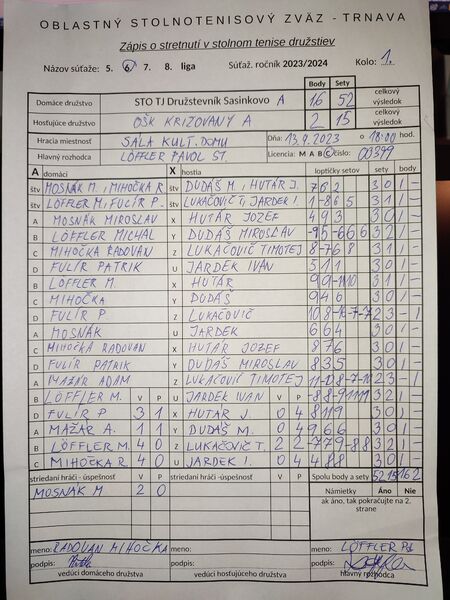 OBLASTNÝ STOLNOTENISOVÝ ZVÄZ - TRNAVA
Zápis o stretnutí v stolnom tenise družstiev
Názov súťaže: 5. 6. 7. 8. liga Súťaž. ročník 2023/2024 Kolo: 1.
Body Sety
Domáce družstvo STO TJ Družstevník Sasinkovo A 16 52 celkový výsledok
Hosťujúce družstvo OŠK KRIŽOVANY A 2 15 celkový výsledok
Hracia miestnosť SÁLA KULT. DOMU Dňa: 13.9.2023 o 18:00 hod.
Hlavný rozhodca LÖFFLER PAVOL ST. Licencia: M A B C číslo: 00399
A domáci X hostia loptičky setov sety body
štv MOSNÁK M., MIHOČKA R štv DUDÁŠ M., HUTÁR J. 7 6 2 3 0 1 -
štv LÖFFLER M., FULÍR P. štv LUKAČOVIČ T, JARDEK I. 1 -8 6 5 3 1 1 -
A MOSNÁK MIROSLAV X HUTÁR JOZEF 4 9 3 3 0 1 -
B LÖFFLER MICHAL Y DUDÁŠ MIROSLAV -9 5 -6 6 6 3 2 1 -
C MIHOČKA RADOVAN Z LUKAČOVIČ TIMOTEJ 8 -7 6 8 3 1 1 -
D FULÍR PATRIK U JARDEK IVAN 5 1 1 3 0 1 -
B LÖFFLER M. X HUTÁR 3 1 1 -
C MIHOČKA Y DUDÁŠ 9 4 6 3 0 1 -
D FULÍR P Z LUKAČOVIČ 10 8 -10 -7 -7 2 3 - 1
A MOSNÁK U JARDEK 6 6 4 3 0 1 -
C MIHOČKA RADOVAN X HUTÁR JOZEF 8 7 6 3 0 1 -
D FULÍR PATRIK Y DUDÁŠ MIROSLAV 8 3 5 3 0 1 -
A MAŽÁR ADAM Z LUKAČOVIČ TIMOTEJ 2 3 - 1
B LÖFFLER M. V P U JARDEK IVAN V P 3 2 1 -
D FULÍR P 3 1 X HUTÁR J. 0 4 8 11 9 3 0 1 -
A MAŽÁR A. 1 1 Y DUDÁŠ M. 0 4 9 6 6 3 0 1 -
B LÖFFLER M. 4 0 Z LUKAČOVIČ T. 2 2 -7 7 9 -8 8 3 2 1 -
C MIHOČKA R. 4 0 U JARDEK I. 0 4 4 8 8 3 0 1 -
striedaní hráči - úspešnosť V P striedaní hráči - úspešnosť V P Spolu body a sety 52 15 16 2
MOSNÁK M 2 0 Námietky Áno Nie
ak áno, tak pokračujte na 2. strane
meno: RADOVAN MIHOČKA meno: meno: LÖFFLER
podpis: podpis: podpis:
vedúci domáceho družstva vedúci hosťujúceho družstva hlavný rozhodca